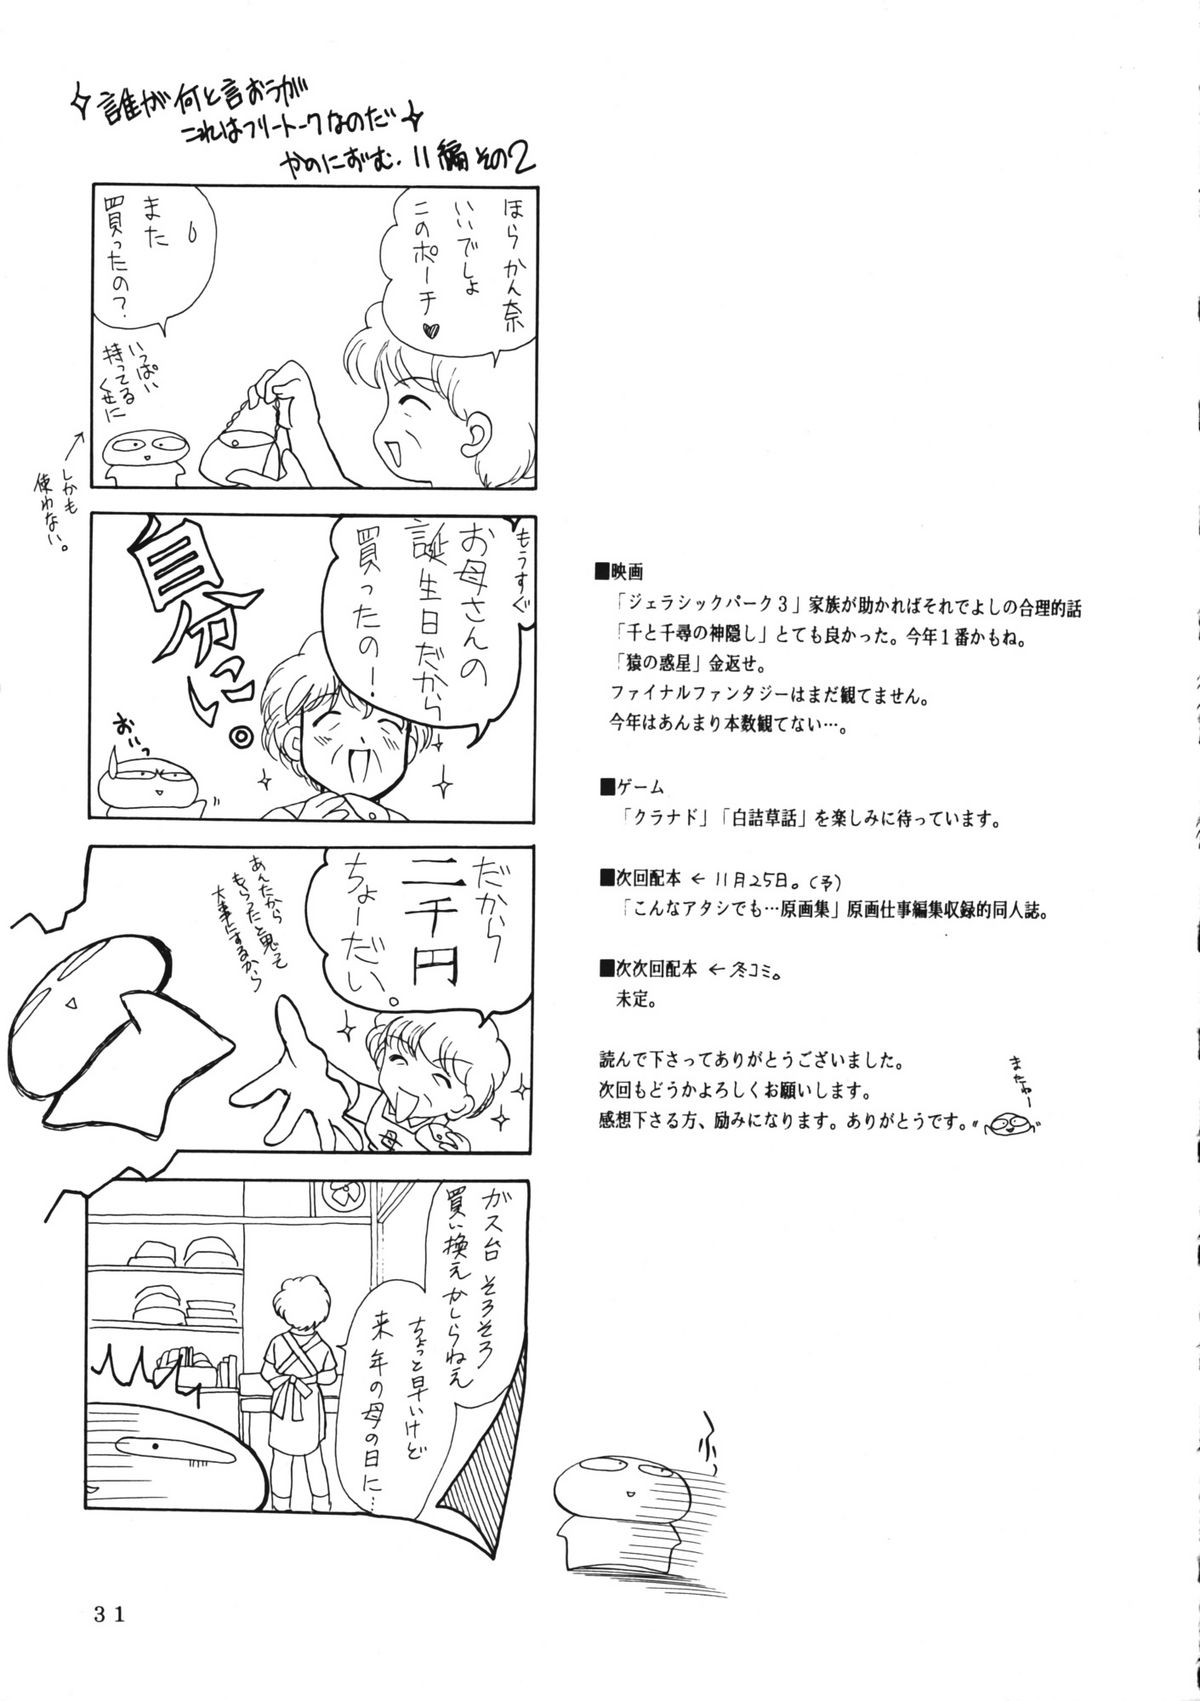 誰が何と言おうが
これはフリートークなのだ
かのにずむ.11編その2
ほらかん奈
いいでしょ
このポーチ♥
また
買ったの？
いっぱい
持ってる
くせに
しかも
使わない。
もうすぐ
お母さんの
誕生日だから
買ったの！
自分に。
おいっ
だから
二千円
ちょーだい。
あんたから
もらったと思って
大事にするから
母
ガス台そろそろ
買い換えかしらねえ
ちょっと早いけど
来年の母の日に…
■映画
「ジェラシックパーク３」家族が助かればそれでよしの合理的話
「千と千尋の神隠し」とても良かった。今年１番かもね。
「猿の惑星」金返せ。
ファイナルファンタジーはまだ観てません。
今年はあんまり本数観てない…。
■ゲーム
「クラナド」「白詰草話」を楽しみに待っています。
■次回配本 ← 11月25日。(予)
「こんなアタシでも…原画集」原画仕事編集収録的同人誌。
■次次回配本 ← 冬コミ。
未定。
読んで下さってありがとうございました。
次回もどうかよろしくお願いします。
感想下さる方、励みになります。ありがとうです。
またねー
３１